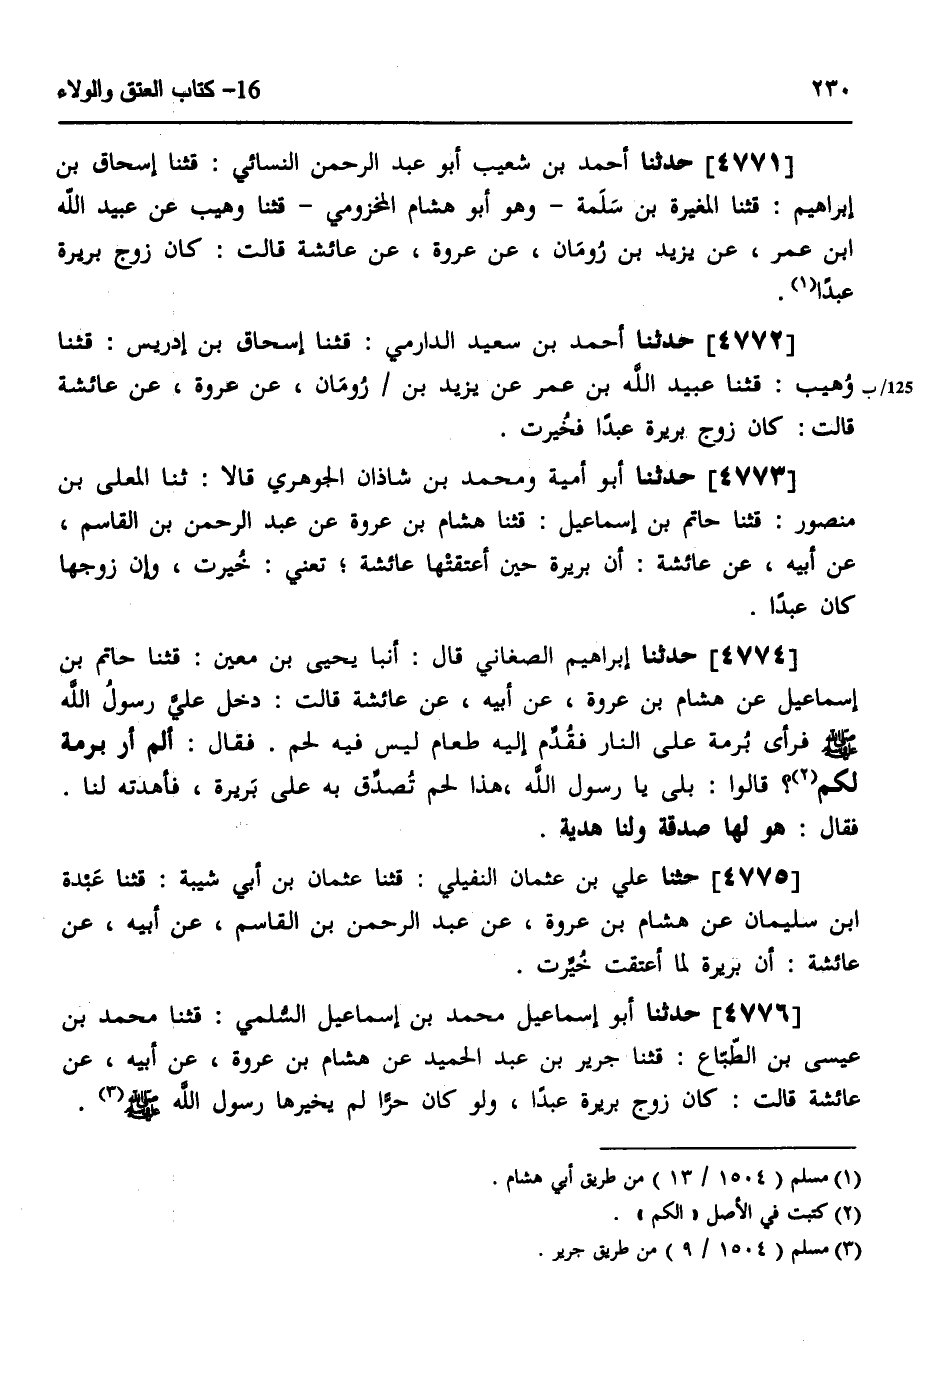 ٢٣٠ 16- كتاب العتق والولاء
[٤٧٧١] حدثنا أحمد بن شعيب أبو عبد الرحمن النسائي : قثنا إسحاق بن
إبراهيم : قثنا المغيرة بن سَلَمة - وهو أبو هشام المخزومي - قثنا وهيب عن عبيد اللَّه
ابن عمر ، عن يزيد بن رُومَان ، عن عروة ، عن عائشة قالت : كان زوج بريرة
عبدًا(١) .
[٤٧٧٢] حدثنا أحمد بن سعيد الدارمي : قثنا إسحاق بن إدريس : قثنا
125/ب وُهيب : قثنا عبيد اللَّه بن عمر عن يزيد بن / رُومَان ، عن عروة ، عن عائشة
قالت : كان زوج بريرة عبدًا فخُيرت .
[٤٧٧٣] حدثنا أبو أمية ومحمد بن شاذان الجوهري قالا : ثنا المعلى بن
منصور : قثنا حاتم بن إسماعيل : قثنا هشام بن عروة عن عبد الرحمن بن القاسم ،
عن أبيه ، عن عائشة : أن بريرة حين أعتقتْها عائشة ؛ تعني : خُيرت ، وإن زوجها
كان عبدًا .
[٤٧٧٤] حدثنا إبراهيم الصغاني قال : أنبا يحيى بن معين : قثنا حاتم بن
إسماعيل عن هشام بن عروة ، عن أبيه ، عن عائشة قالت : دخل عليَّ رسولُ اللَّه
ﷺ فرأى بُرمة على النار فقُدِّم إليه طعام ليس فيه لحم . فقال : ألم أر برمة
لكم(٢)؟ قالوا : بلى يا رسول اللَّه ،هذا لحم تُصدِّق به على بَريرة ، فأهدته لنا .
فقال : هو لها صدقة ولنا هدية .
[٤٧٧٥] حثنا علي بن عثمان النفيلي : قثنا عثمان بن أبي شيبة : قثنا عَبْدة
ابن سليمان عن هشام بن عروة ، عن عبد الرحمن بن القاسم ، عن أبيه ، عن
عائشة : أن بريرة لما أعتقت خُيِّرت .
[٤٧٧٦] حدثنا أبو إسماعيل محمد بن إسماعيل السُّلمي : قثنا محمد بن
عيسى بن الطَّبّاع : قثنا جرير بن عبد الحميد عن هشام بن عروة ، عن أبيه ، عن
عائشة قالت : كان زوج بريرة عبدًا ، ولو كان حرًّا لم يخيرها رسول اللَّه ﷺ(٣) .
(١) مسلم ( ١٥٠٤ / ١٣ ) من طريق أبي هشام .
(٢) كتبت في الأصل « الكم » .
(٣) مسلم ( ١٥٠٤ / ٩ ) من طريق جرير .